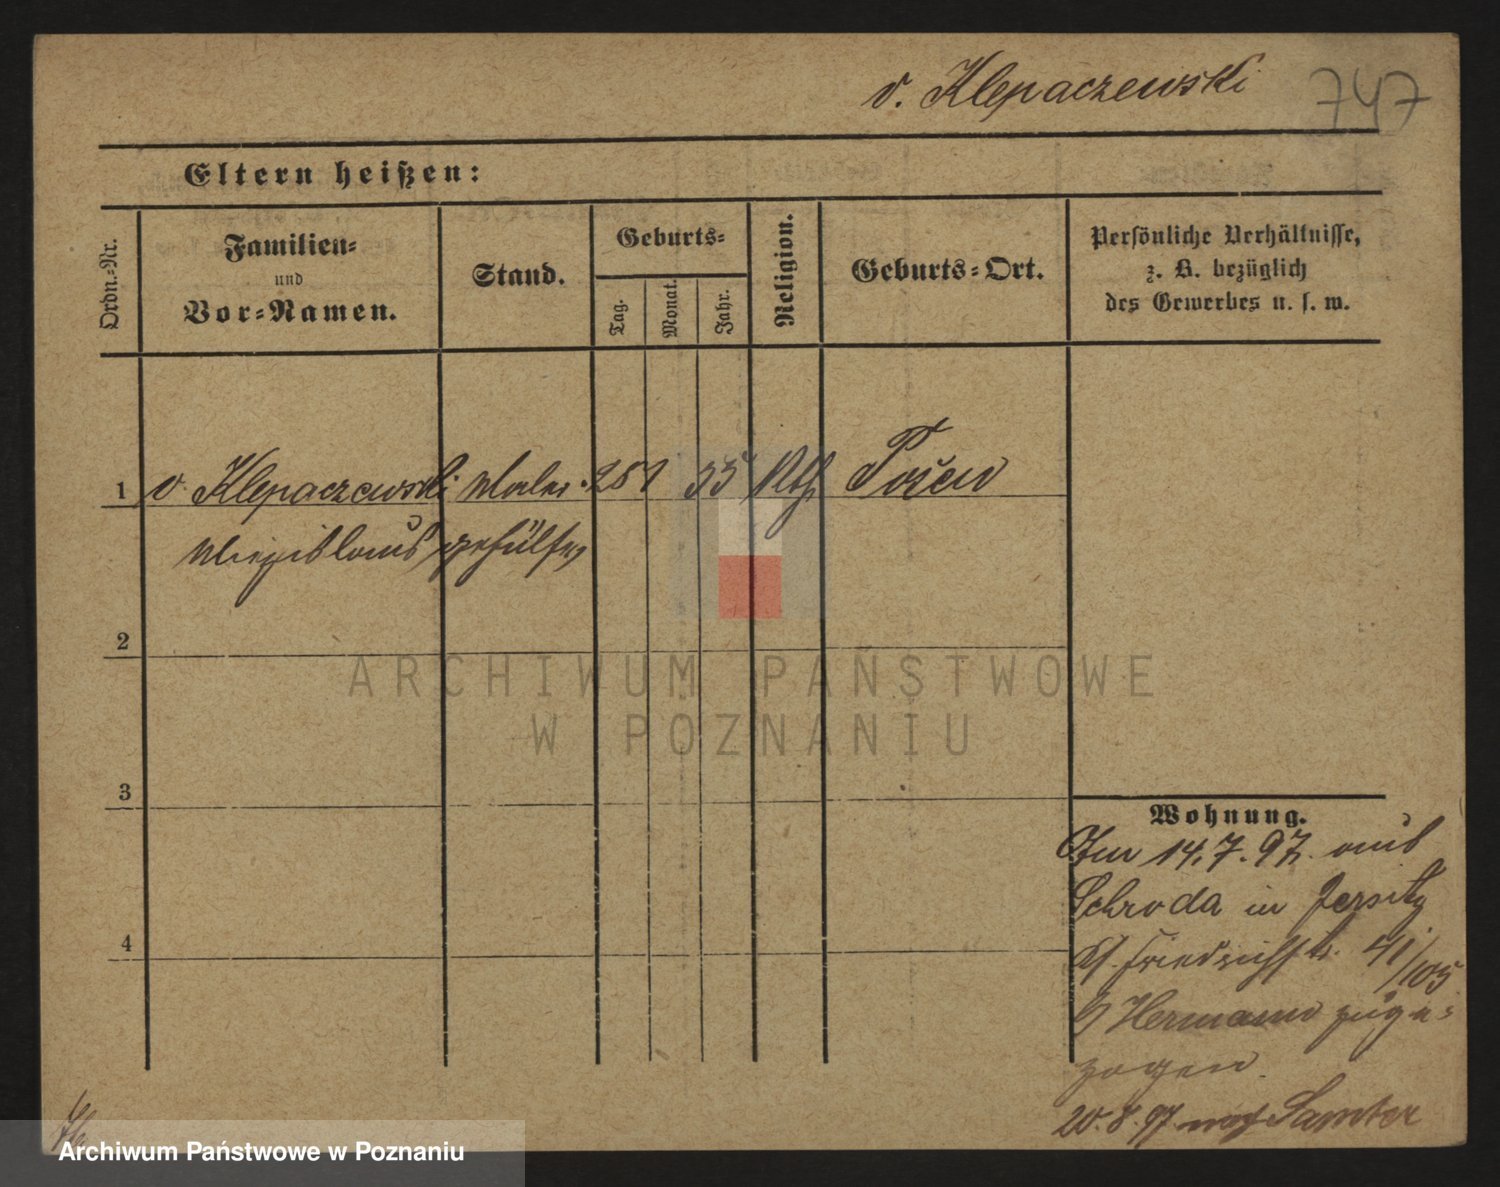 v. Klepaczewski 747
Eltern heißen:
Ordn.-Nr.
Familien-
und
Vor-Namen.
Stand.
Geburts-
Tag.
Monat.
Jahr.
Religion.
Geburts-Ort.
Persönliche Verhältnisse,
z. B. bezüglich
des Gewerbes u. s. w.
1 v. Klepaczewski Maler- 28 1 55 Kth Posen
gehülfe
2
3
4
Wohnung.
Am 14.7.97. aus
Schroda in Jersitz
Gr. Friedrichstr. 41/105
b/ Hermann zuge-
zogen.
20.8.97 nach Samter
ARCHIWUM PAŃSTWOWE
W POZNANIU
Archiwum Państwowe w Poznaniu